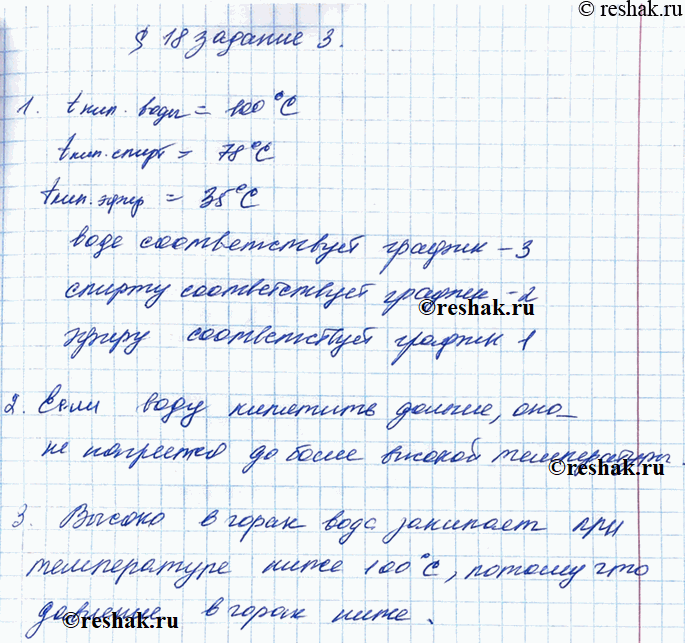 © reshak.ru
§ 18 задание 3.
1. tкип. воды = 100°C
tкип. спирт = 78°C
tкип. эфир = 35°C
воде соответствует график - 3
спирту соответствует график - 2
©reshak.ru
эфиру соответствует график 1
2. Если воду кипятить дольше, она
не нагреется до более высокой температуры.
©reshak.ru
3. Высоко в горах вода закипает при
температуре ниже 100°C, потому что
давление в горах ниже.
©reshak.ru